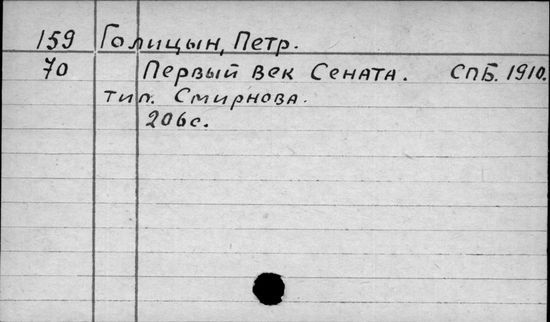 159 Голицын, Петр.
70 Первый век Сената. СПБ. 1910.
тип. Смирнова.
206с.